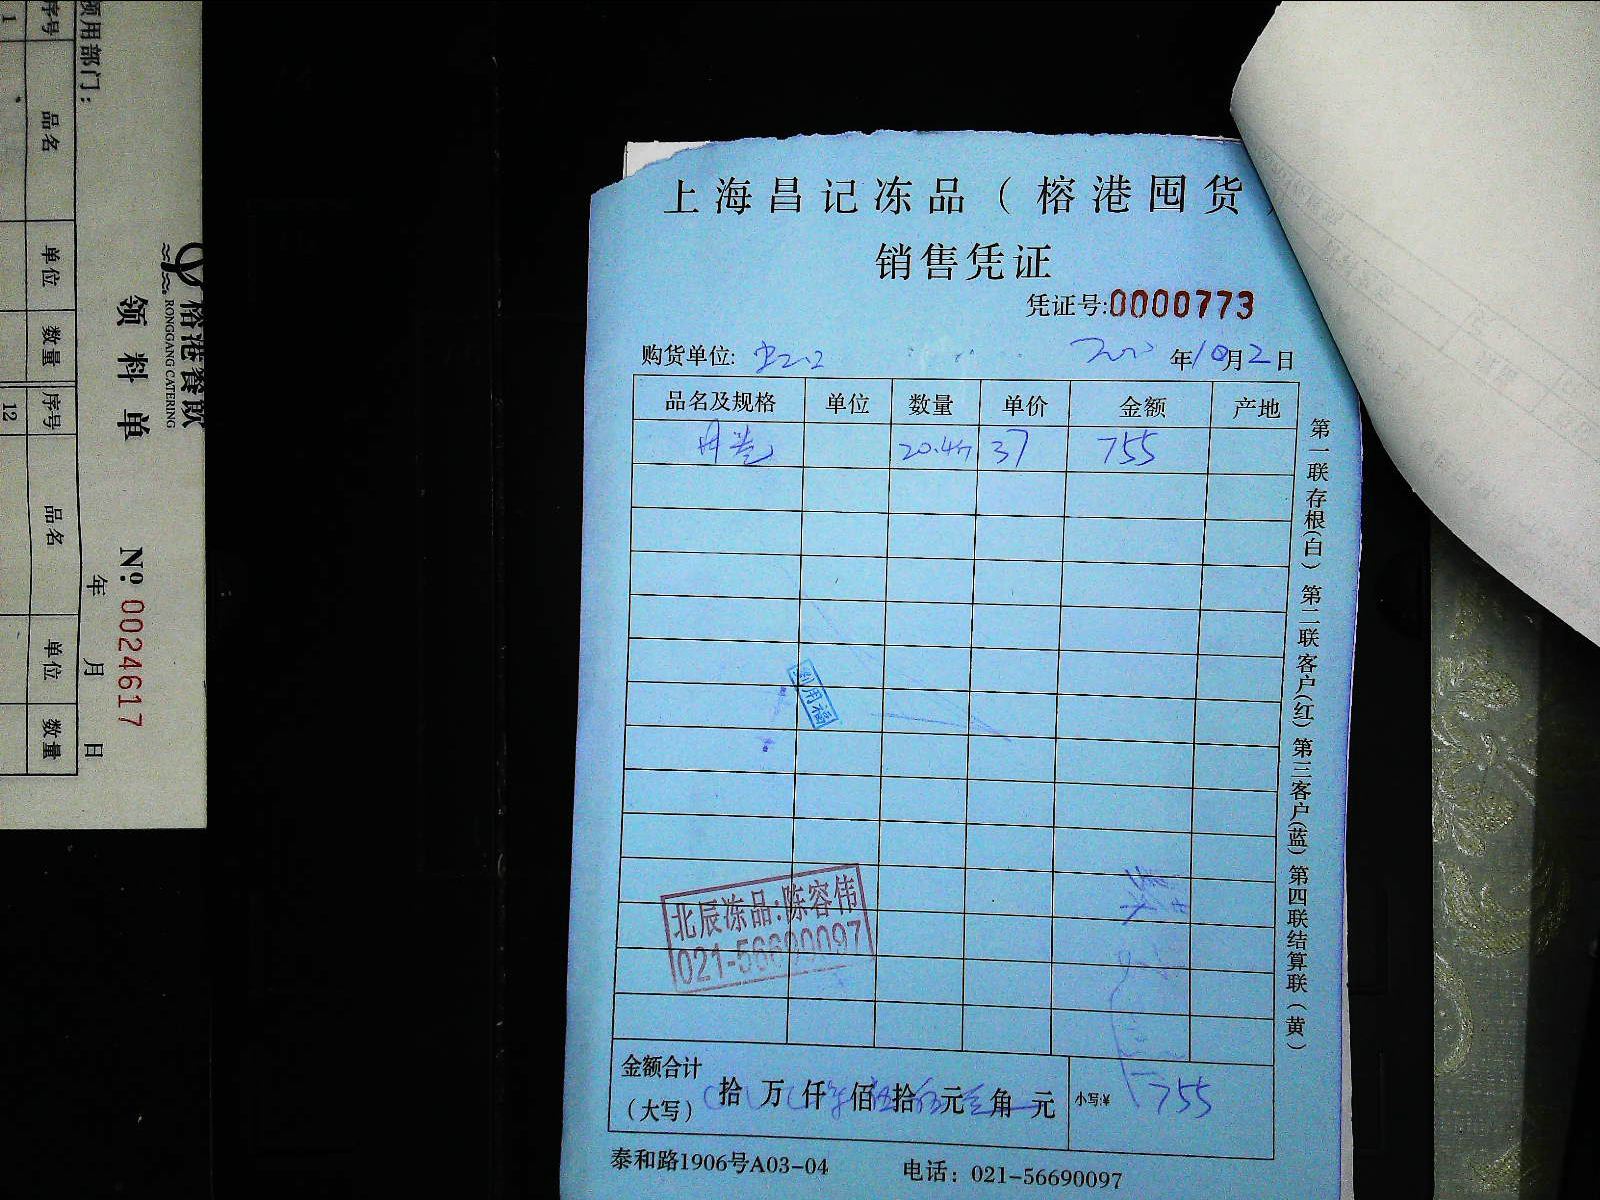 上海昌记冻品（榕港囤货）
销售凭证
凭证号:0000773
购货单位: 年10月2日
品名及规格 单位 数量 单价 金额 产地
20.4 37 755
第一联存根(白) 第二联客户(红) 第三客户(蓝) 第四联结算联(黄)
北辰冻品:陈容伟
021-56690097
金额合计
(大写) 拾 万 仟 佰 拾 元 角 元 小写:¥ 755
泰和路1906号A03-04 电话：021-56690097
榕港餐飲
RONGGANG CATERING
领料单 № 0024617
领用部门： 年 月 日
序号 品名 单位 数量 序号 品名 单位 数量
1 12